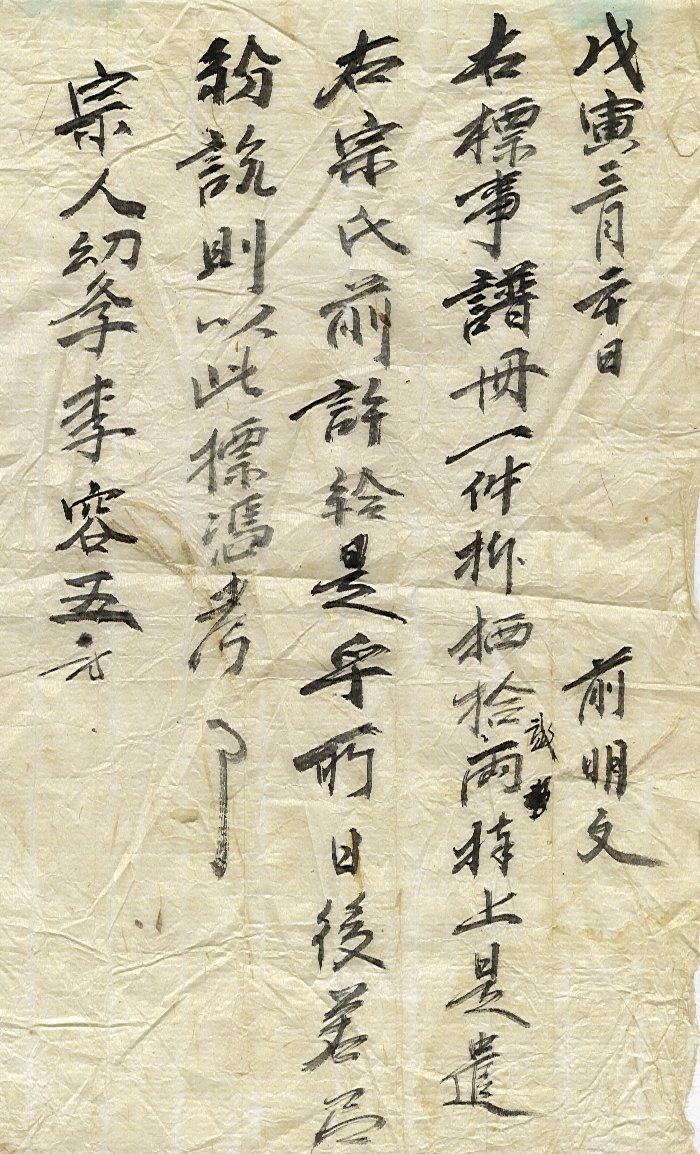 戊寅三月二十日 前明文
右標事譜冊一件折価拾貳兩捧上是遣
右宗氏前許給是乎所日後若有
紛說則以此標憑考
宗人幼學李容五